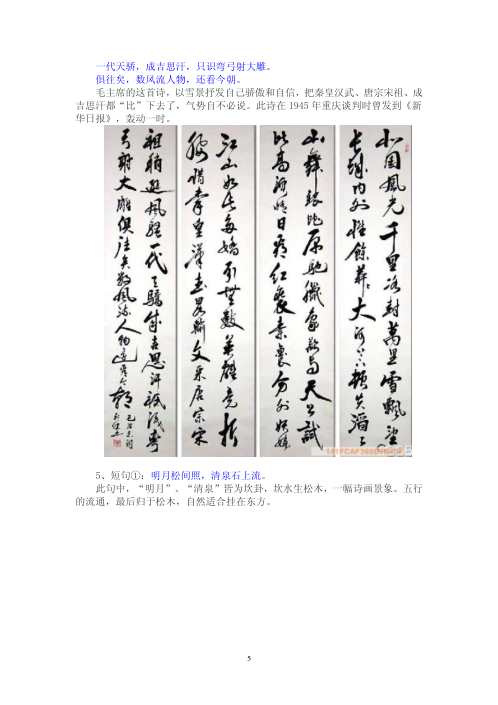 一代天骄，成吉思汗，只识弯弓射大雕。
俱往矣，数风流人物，还看今朝。
毛主席的这首诗，以雪景抒发自己骄傲和自信，把秦皇汉武、唐宗宋祖、成
吉思汗都“比”下去了，气势自不必说。此诗在 1945 年重庆谈判时曾发到《新
华日报》，轰动一时。
北國風光千里冰封萬里雪飄望
長城内外惟餘莽々大河上下頓失滔々
山舞銀蛇原馳蠟象欲與天公試
比高須晴日看紅裝素裹分外妖嬈
江山如此多嬌引無數英雄競折
腰惜秦皇漢武略輸文采唐宗宋
祖稍遜風騷一代天驕成吉思汗祇識彎
弓射大雕俱往矣數風流人物還看今朝
5、短句①：明月松间照，清泉石上流。
此句中，“明月”、“清泉”皆为坎卦，坎水生松木，一幅诗画景象。五行
的流通，最后归于松木，自然适合挂在东方。
5